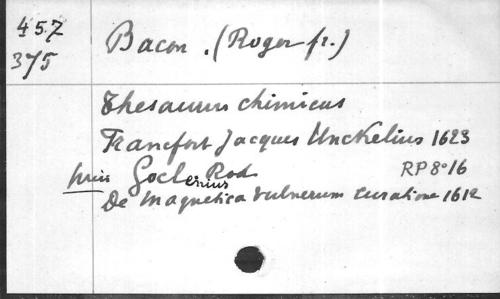 457
375
Bacon . (Roger fr.)
Thesaurus chimicus
Francfort Jacques Unckelius 1623
RP 8° 16
puis Goclenius Rod
De Magnetica vulnerum curatione 1612